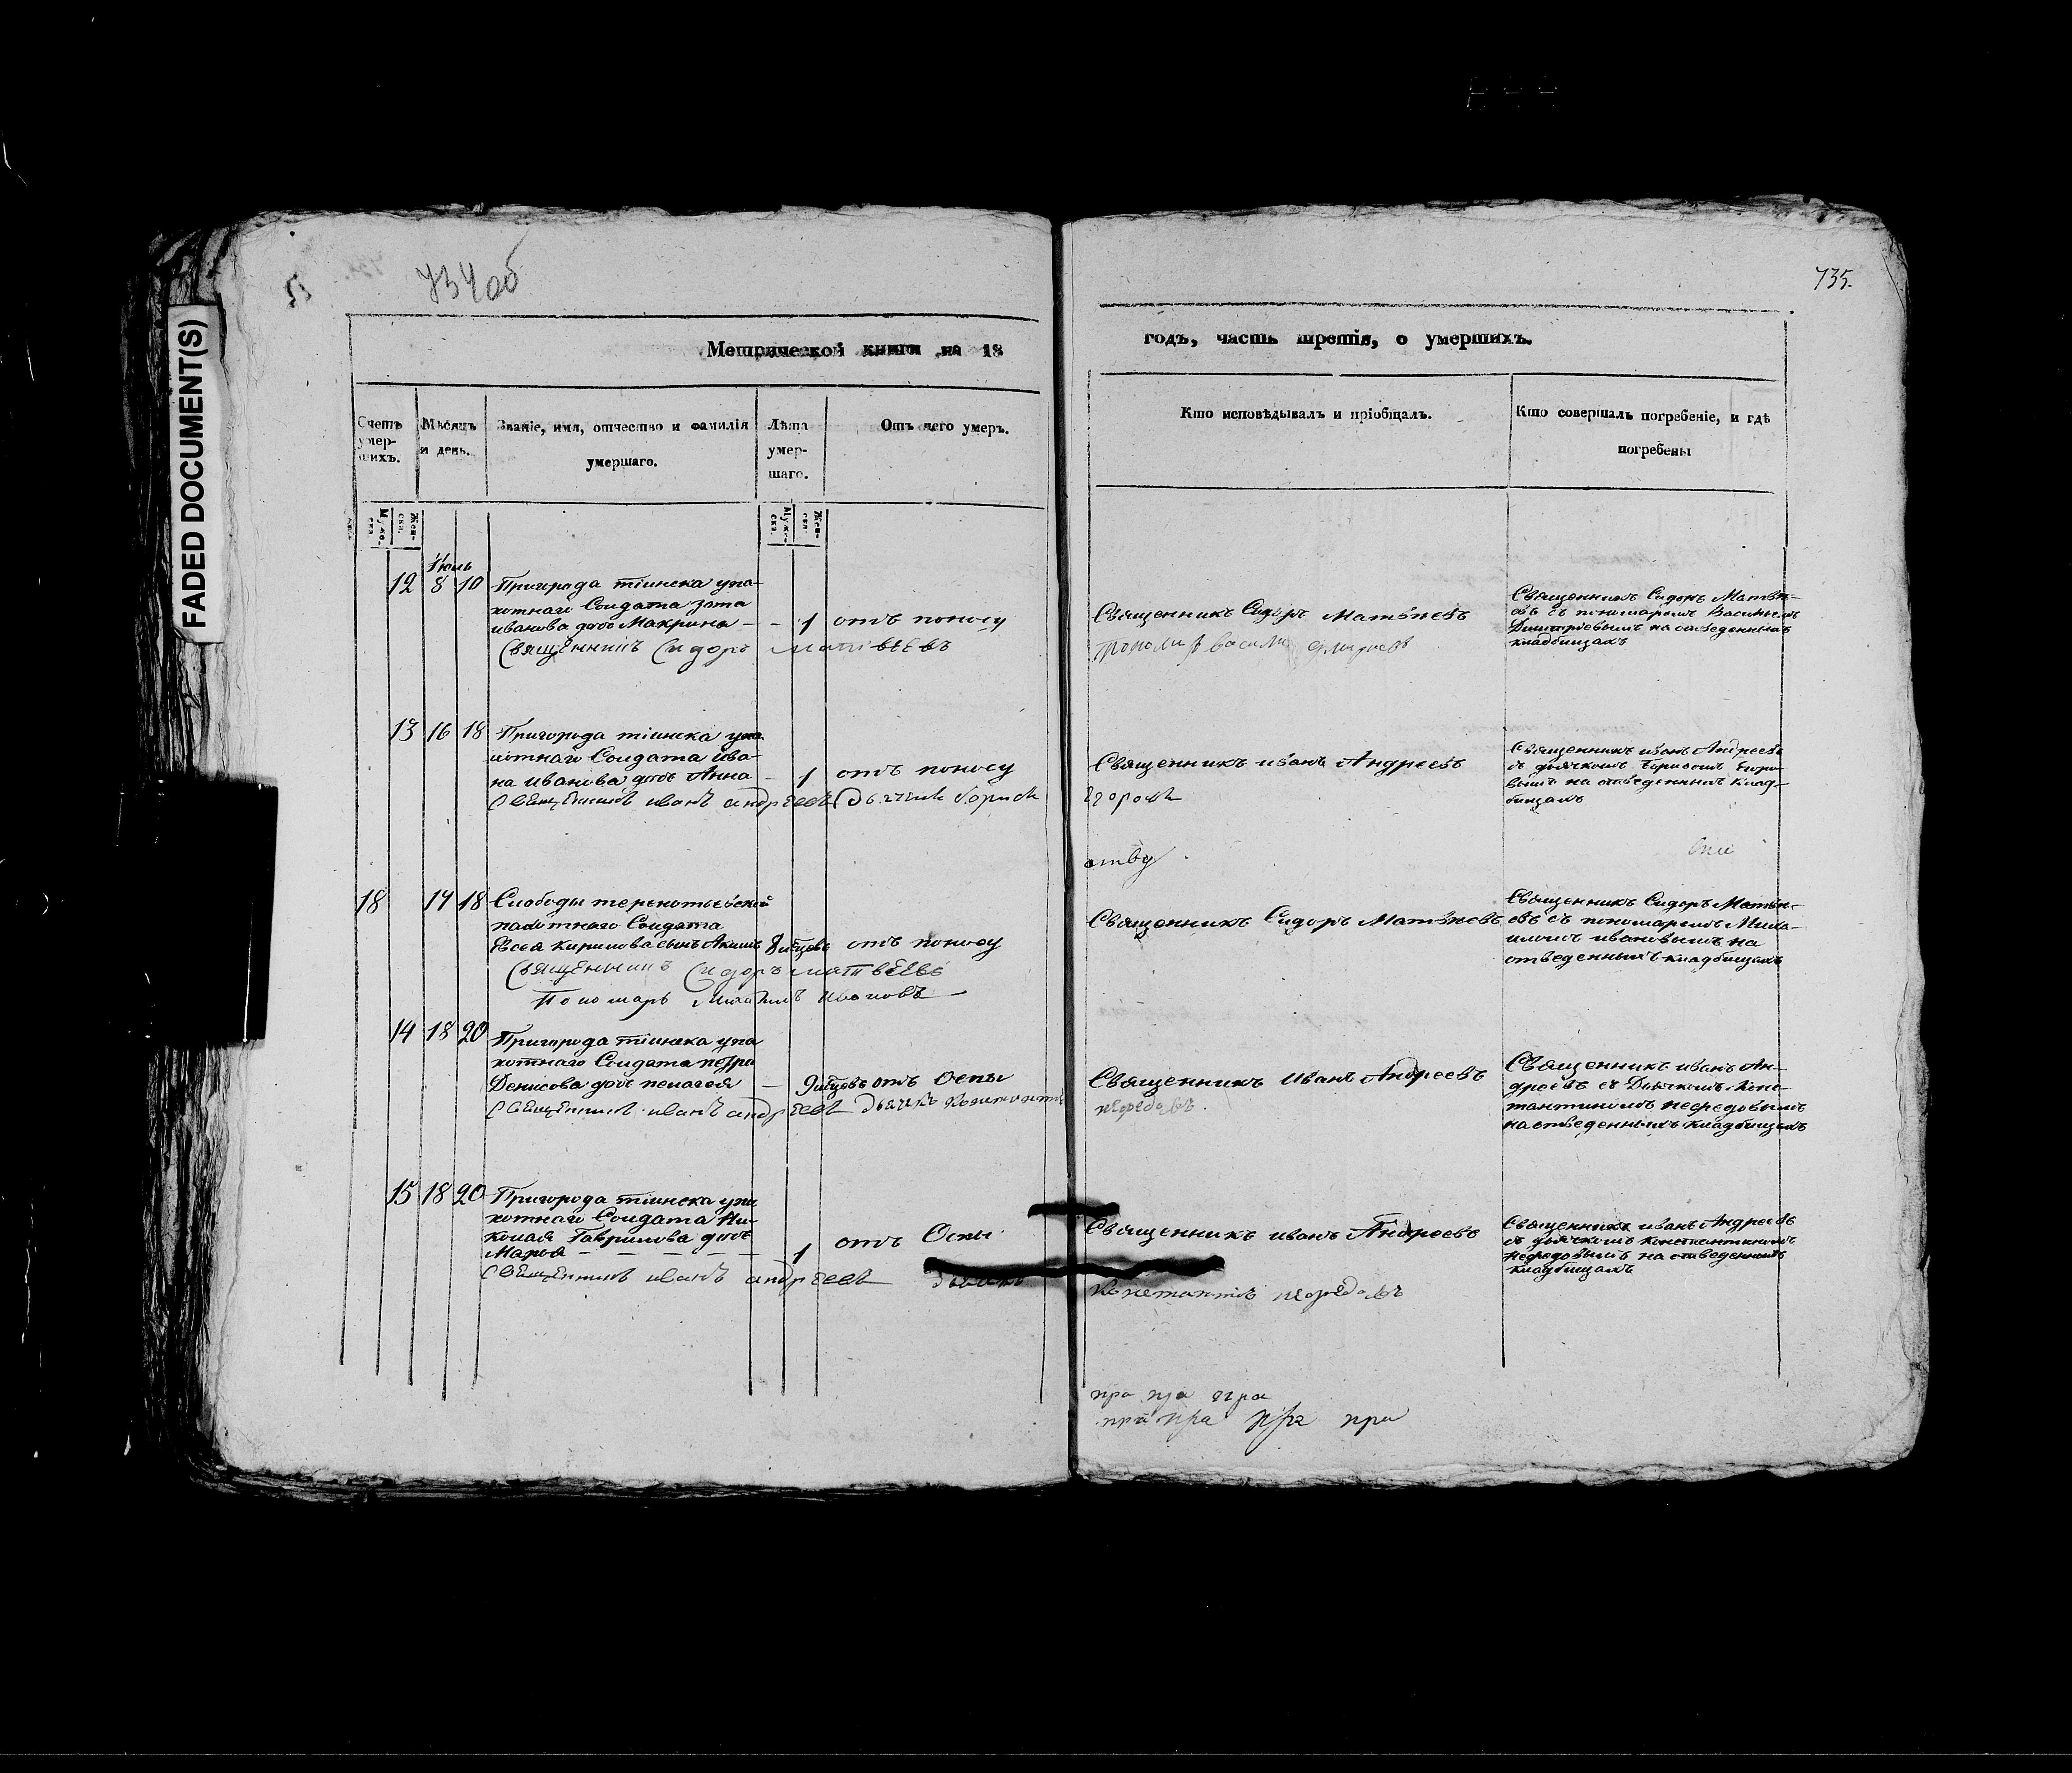 FADED DOCUMENT(S)
734об
735.
Метрической книги на 18
годъ, часть третія, о умершихъ.
Счетъ умер-шихъ.
Мѣсяцъ и день.
Званіе, имя, отчество и фамилія
умершаго.
Лѣта умер-шаго.
Отъ чего умеръ.
Кто исповѣдывалъ и пріобщалъ.
Кто совершалъ погребеніе, и гдѣ
погребены
Муже-ска. Жен-ска.
Муже-ска. Жен-ска.
Іюль
12 8 10 Пригорода тіинска упа-
хотнаго Солдата
иванова дочь Макрина — – 1 отъ поносу
Священникъ Сидоръ матвѣевъ
Священникъ Сидоръ Матвѣевъ
василий
Священникъ Сидоръ Матвѣ-
евъ съ пономаремъ Васильемъ
Димитріевымъ на отведенныхъ
кладбищахъ
13 16 18 Пригорода тіинска упа
хотнаго Солдата ива-
на иванова дочь Анна – 1 отъ поносу
Свещенникъ иванъ андреевъ Дьячекъ борисъ
Священникъ иванъ Андреевъ
егоровъ
Священникъ иванъ Андреевъ
съ дьячкомъ Борисомъ Егоро-
вымъ на отведенныхъ клад-
бищахъ
отву
18 17 18 Слободы
пахотнаго Солдата
Евсея кирилова сынъ Акимъ 8 мѣсцовъ отъ поносу
Священникъ Сидоръ матвѣевъ
Пономарь Михаилъ Ивановъ
Священникъ Сидоръ Матвѣевъ
Священникъ Сидоръ Матвѣ-
евъ съ пономаремъ Миха-
иломъ ивановымъ на
отведенныхъ кладбищахъ
14 18 20 Пригорода тіинска упа
хотнаго Солдата петра
Денисова дочь пелагея — 9 мѣсцовъ отъ Оспы
Свещенникъ иванъ андреевъ Дьячекъ константи
Священникъ Иванъ Андреевъ
нефедовъ.
Священникъ иванъ Ан-
дреевъ съ Дьячкомъ Конс-
тантиномъ нефедовымъ
на отведенныхъ кладбищахъ
15 18 20 Пригорода тіинска упа
хотнаго Солдата Ни-
колая Гаврилова дочь
Марфа — — — — — 1 отъ Оспы
Свещенникъ иванъ андреевъ дьячекъ
Священникъ иванъ Андреевъ
Константинъ нефедовъ
Священникъ иванъ Андреевъ
съ дьячкомъ константиномъ
нефедовымъ на отведенныхъ
кладбищахъ
пра пра пра
пра пра пра при